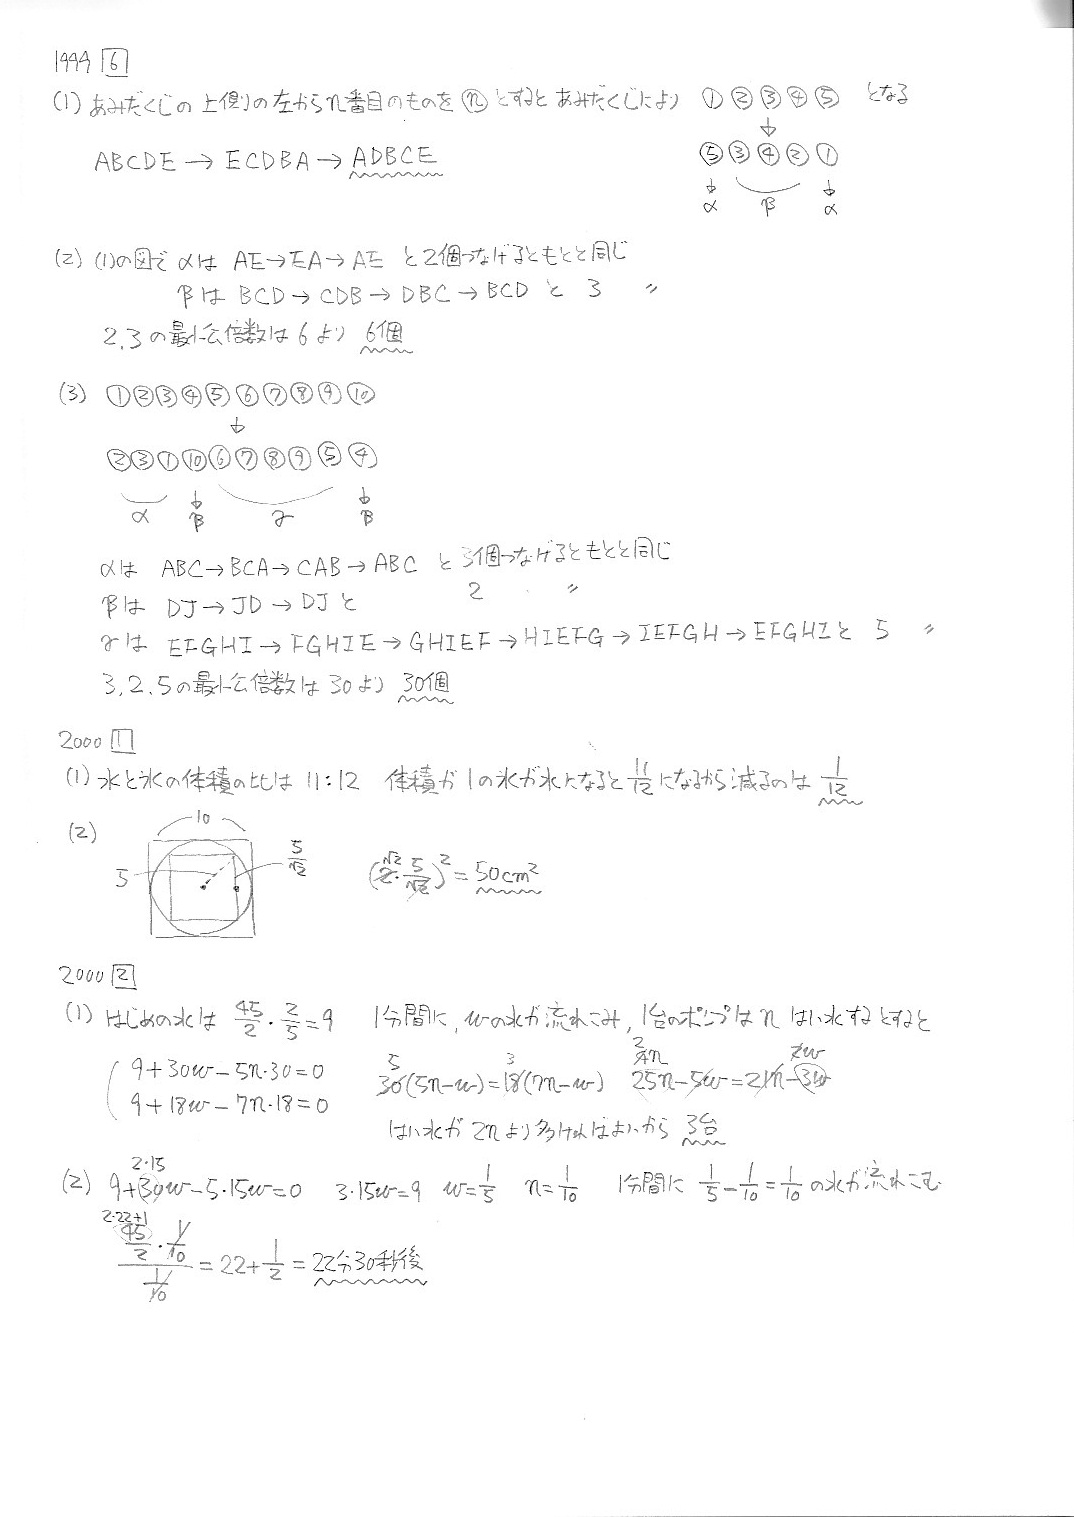 1999 6
(1) あみだくじの上側の左からn番目のものを ⓝ とするとあみだくじにより ①②③④⑤ となる
↓
ABCDE→ECDBA→ADBCE ⑤③④②①
↓ ↓
α β α
(2) (1)の図で αは AE→EA→AE と2個つなげるともとと同じ
βは BCD→CDB→DBC→BCD と 3 〃
2,3の最小公倍数は6より 6個
(3) ①②③④⑤⑥⑦⑧⑨⑩
↓
②③①⑩⑥⑦⑧⑨⑤④
↓ ↓
α β γ β
αは ABC→BCA→CAB→ABC と 3個つなげるともとと同じ
βは DJ→JD→DJと 2 〃
γは EFGHI→FGHIE→GHIEF→HIEFG→IEFGH→EFGHIと 5 〃
3,2,5の最小公倍数は30より 30個
2000 1
(1) 水と氷の体積の比は 11:12 体積が1の氷が水になると 11/12 になるから減るのは 1/12
(2) 10
5 5/√2 (2·5/√2)² = 50cm²
√2
2000 2
(1) はじめの水は 45/2 · 2/5 = 9 1分間に, wの水が流れこみ, 1台のポンプは n はい水するとすると
9+30w−5n·30=0 30(5n−w)=18(7n−w) 25n−5w=21n−3w
5 3 2 4n 2w
9+18w−7n·18=0
はい水が 2nより多ければよいから 3台
(2) 9+30w−5·15w=0 3·15w=9 w=1/5 n=1/10 1分間に 1/5−1/10=1/10 の水が流れこむ
2·15
2·22+1
45/2 · 1/10 / 1/10 = 22+1/2 = 22分30秒後